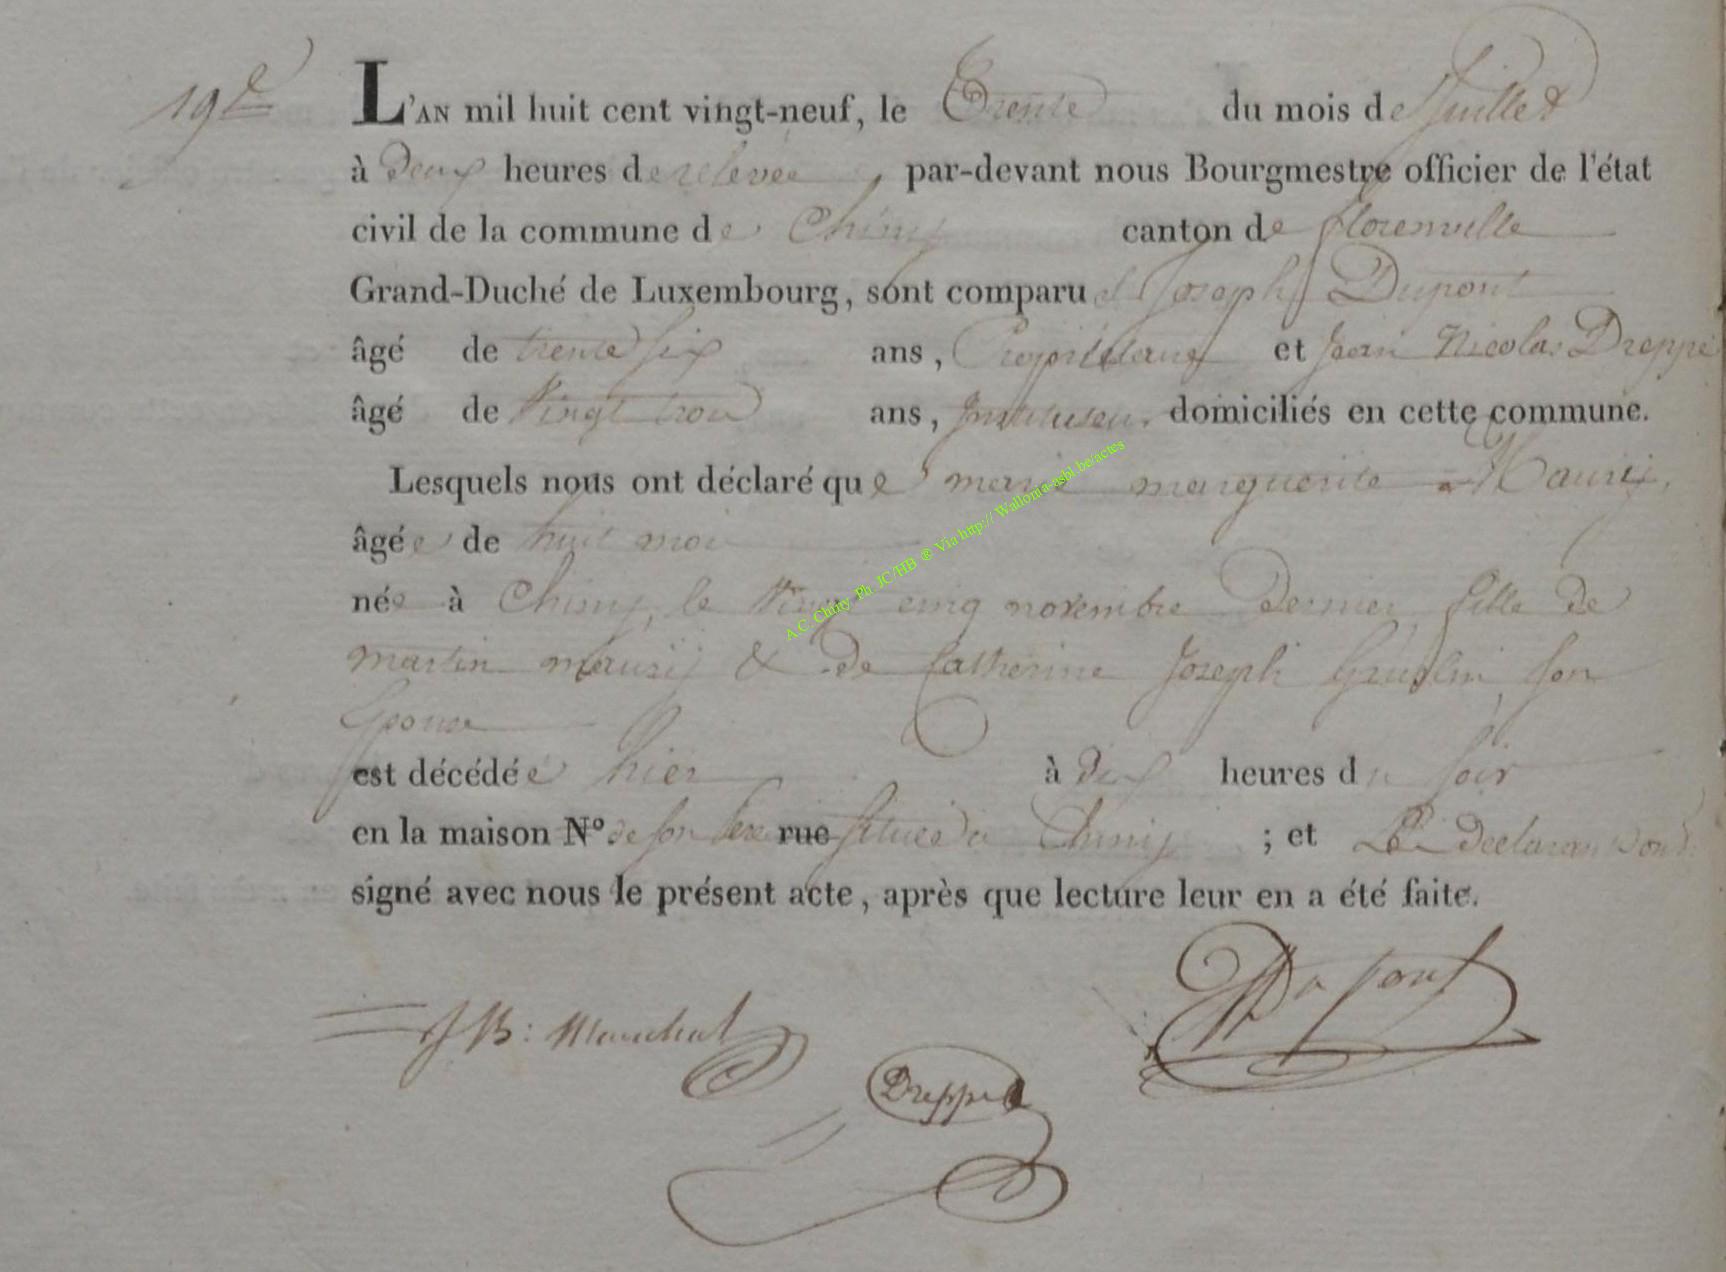 19e
L'AN mil huit cent vingt-neuf, le Trente du mois de Juillet
à deux heures de relevée, par-devant nous Bourgmestre officier de l'état
civil de la commune de Chiny canton de florenville
Grand-Duché de Luxembourg, sont comparu et Joseph Dupont
âgé de trente six ans, Propriétaire et Jean Nicolas Dreppe
âgé de Vingt trois ans, Instituteur domiciliés en cette commune.
Lesquels nous ont déclaré que marie marguerite Maurij,
âgée de huit mois
née à Chiny, le Vingt cinq novembre dernier, fille de
martin maurij & de Catherine Joseph son
Epouse
est décédée hier à dix heures du soir
en la maison N° de son Père rue située à Chiny ; et Les declarans ont
signé avec nous le présent acte, après que lecture leur en a été faite.
JB: Marechal
Dupont
Dreppe
A.C. Chiny Ph JC/HB ® Via http:// Wallonia-asbl.be/actes